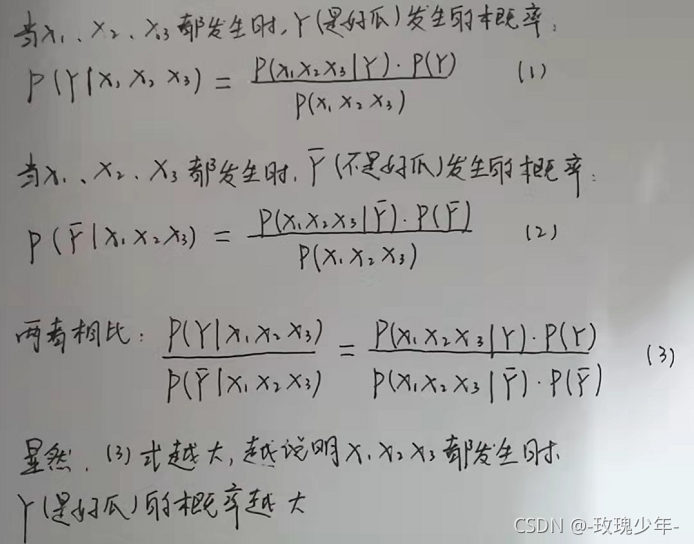 当x₁、x₂、x₃都发生时,Y(是好瓜)发生的概率:
P(Y|x₁x₂x₃) = P(x₁x₂x₃|Y)·P(Y) / P(x₁x₂x₃) (1)
当x₁、x₂、x₃都发生时,Ȳ(不是好瓜)发生的概率:
P(Ȳ|x₁x₂x₃) = P(x₁x₂x₃|Ȳ)·P(Ȳ) / P(x₁x₂x₃) (2)
两者相比: P(Y|x₁x₂x₃) / P(Ȳ|x₁x₂x₃) = P(x₁x₂x₃|Y)·P(Y) / P(x₁x₂x₃|Ȳ)·P(Ȳ) (3)
显然,(3)式越大,越说明x₁x₂x₃都发生时,
Y(是好瓜)的概率越大
CSDN @-玫瑰少年-